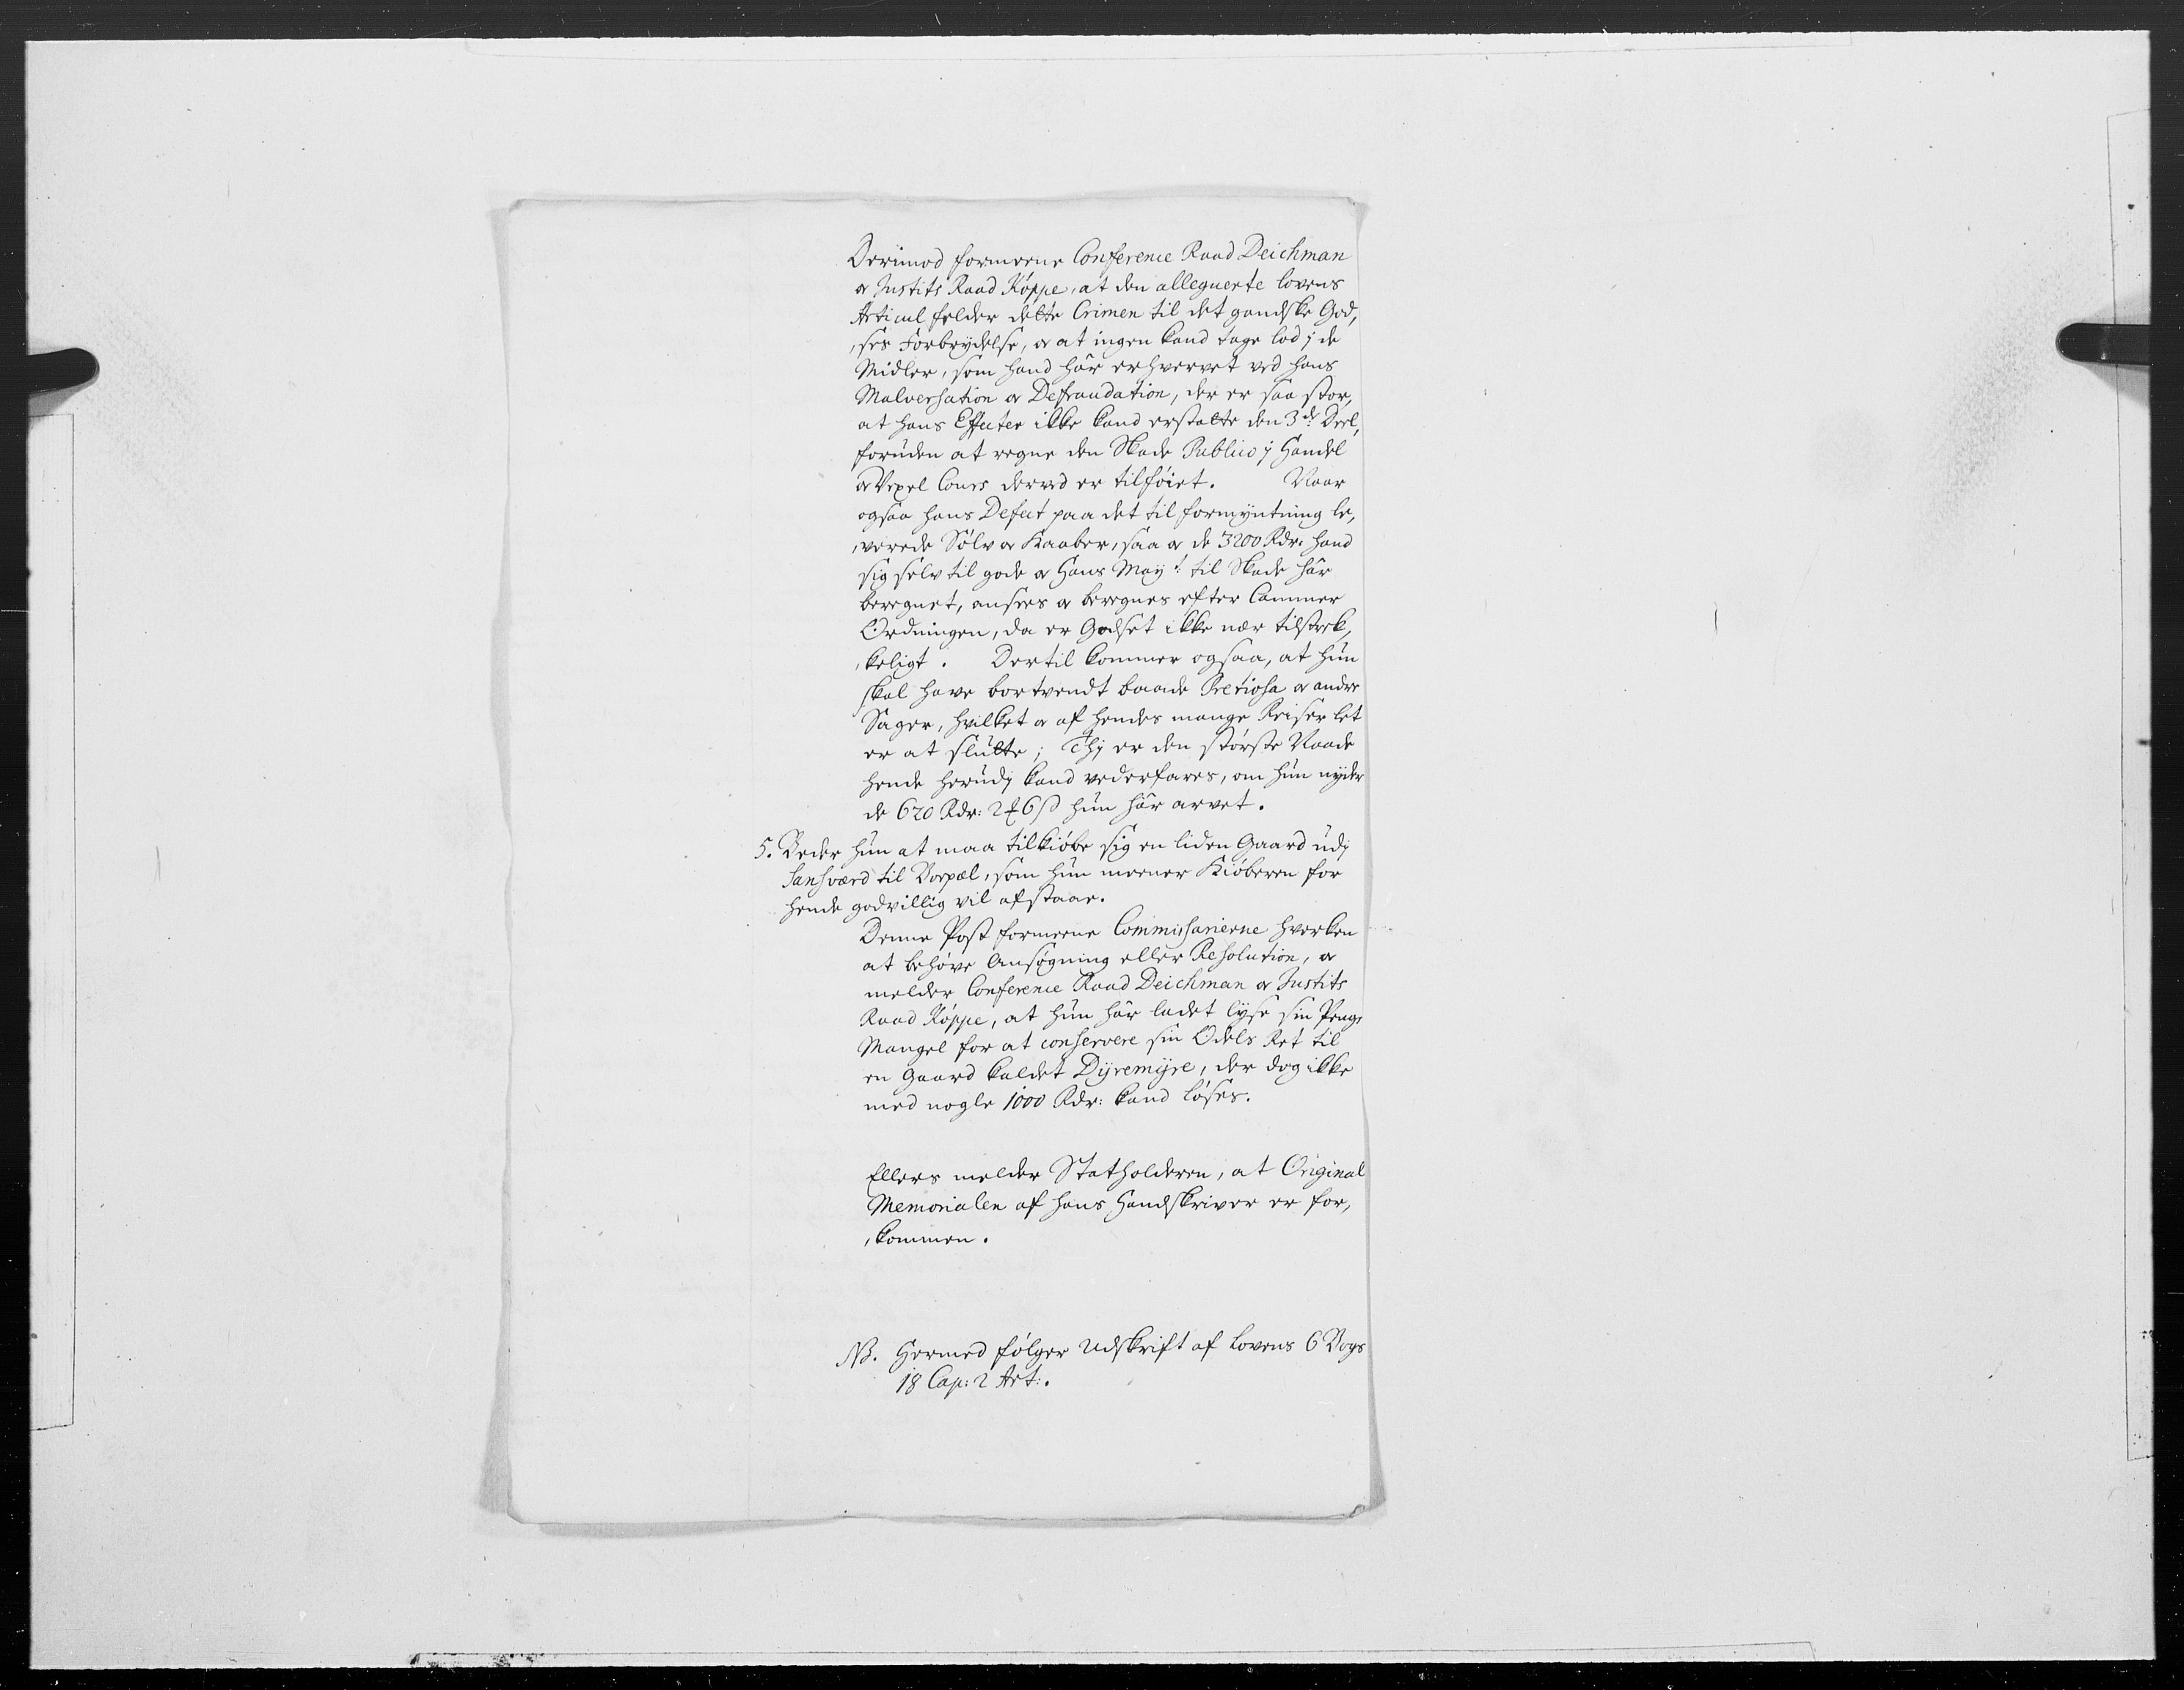 Derimod formeene Conference Raad Deichman
og Justits Raad Køppe, at den alleguerte lovens
Articul felder dette Crimen til det gandske God,
,ses Forbrydelse, og at ingen kand tage lod j de
Midler, som hand hâr erhvervet ved hans
Malversation og Defraudation, der er saa stor,
at hans Effecter ikke kand erstatte den 3de Deel,
foruden at regne den Skade Publico j Handel
og Vexel Cours derved er tilføiet. Naar
ogsaa hans Defect paa det til formyntning le,
,verede Sølv og Kaaber, saa og de 3200 Rdr: hand
sig selv til gode og Hans Mayt: til Skade hâr
beregnet, ansees og beregnes efter Cammer
Ordningen, da er Godset ikke nær tilstrek,
,keligt. Dertil kommer ogsaa, at hun
skal have bortvendt baade Pretiosa og andre
Sager, hvilket og af hendes mange Reiser let
er at slutte; Thj er den største Naade
hende herudj kand vederfares, om hun nyder
de 620 Rdr: 2 ₰ 6 ß hun hâr arvet.
5. Beder hun at maa tilkiøbe sig en liden Gaard udj
Sansværd til Borpæl, som hun meener Kiøberen for
hende godvillig vil afstaae.
Denne Post formeene Commissarierne hverken
at behøve Ansøgning eller Resolution, og
melder Conference Raad Deichman og Justits
Raad Køppe, at hun hâr ladet lyse sin Penge
Mangel for at conservere sin Odels Ret til
en Gaard kaldet Dyremyre, der dog ikke
med nogle 1000 Rdr: kand løses.
Ellers melder Statholderen, at Original
Memorialen af hans Handskriver er for,
,kommen.
NB. Hermed følger Udskrift af Lovens 6 Bogs
18 Cap: 2 Art:.